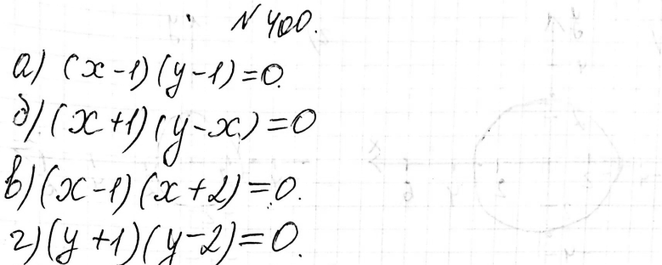 № 400.
а) (x-1)(y-1)=0.
б) (x+1)(y-x)=0
в) (x-1)(x+2)=0.
г) (y+1)(y-2)=0.